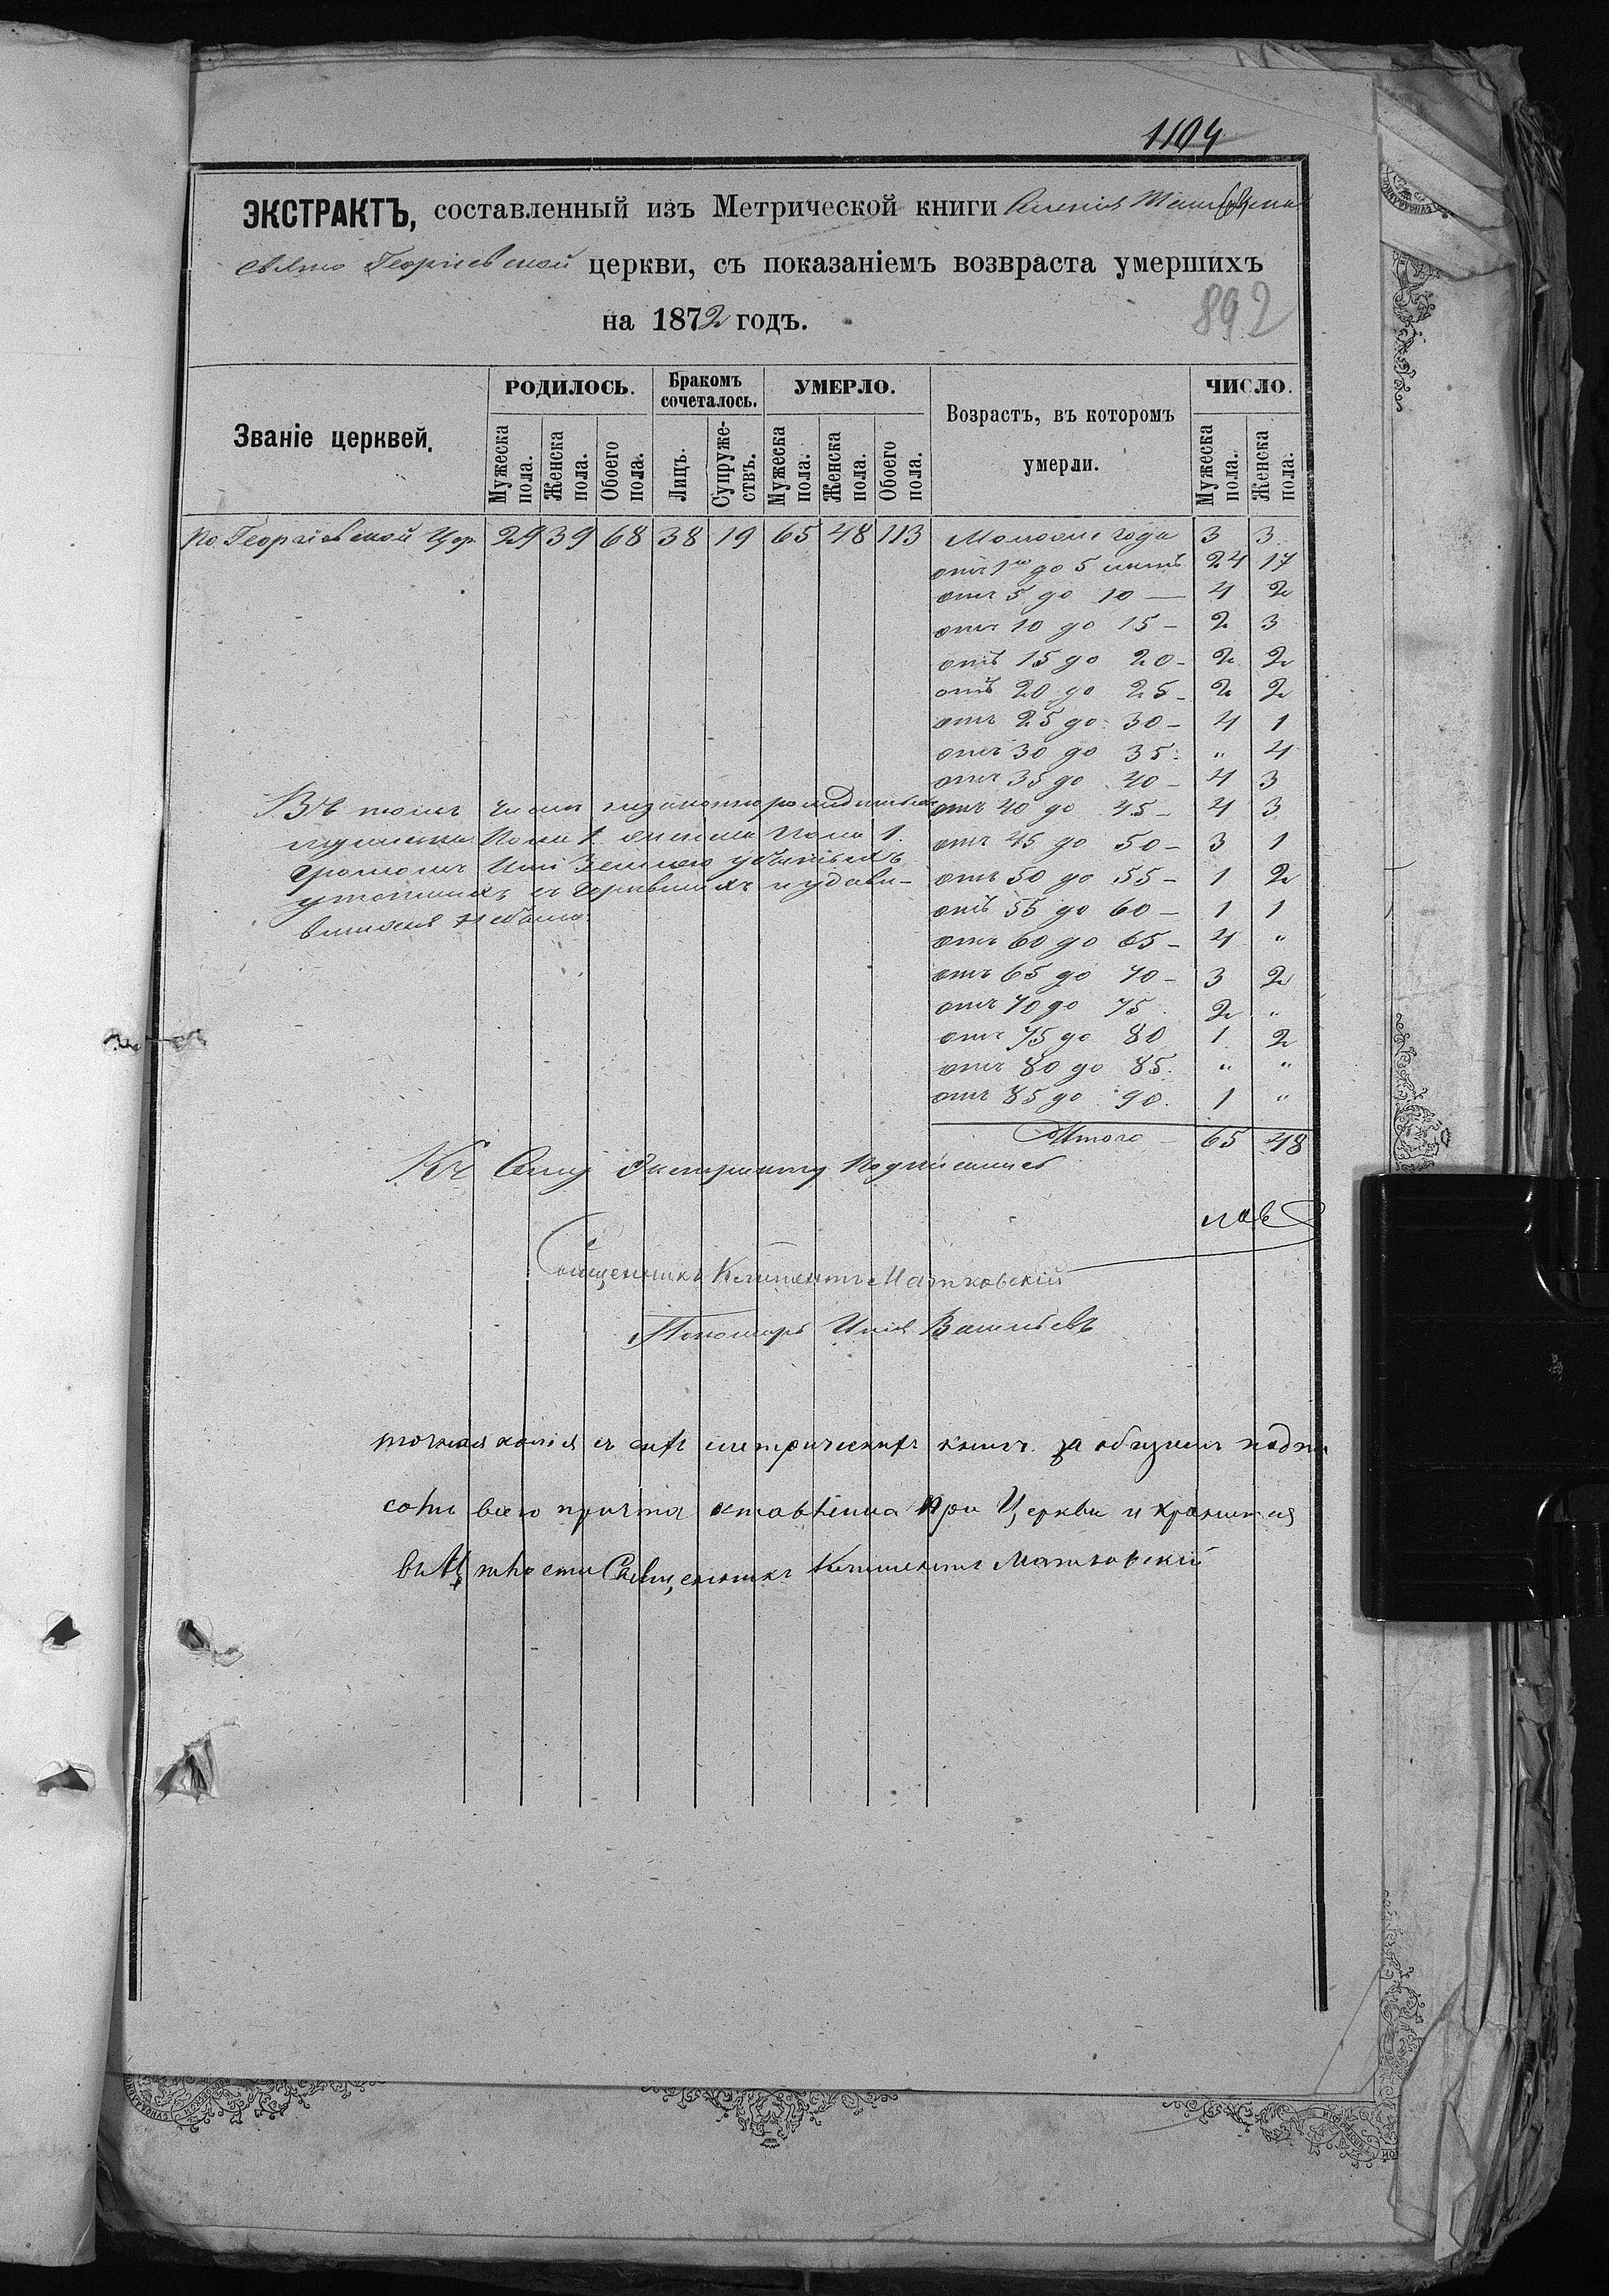 1104
ЭКСТРАКТЪ, составленный изъ Метрической книги Селенія
Свято Георгіевской церкви, съ показаніемъ возвраста умершихъ
на 1872 годъ.
892
Званіе церквей.
РОДИЛОСЬ.
Бракомъ сочеталось.
УМЕРЛО.
Возрастъ, въ которомъ умерли.
ЧИСЛО.
Мужеска пола.
Женска пола.
Обоего пола.
Лицъ.
Супружествъ.
Мужеска пола.
Женска пола.
Обоего пола.
Мужеска пола.
Женска пола.
По Георгіевской Цер. 29 39 68 38 19 65 48 113 года 3 3
отъ 1го до 5 летъ 24 17
отъ 5 до 10 — 4 2
отъ 10 до 15 - 2 3
отъ 15 до 20 - 2 2
отъ 20 до 25 - 2 2
отъ 25 до 30 - 4 1
отъ 30 до 35 „ 4
отъ 35 до 40 - 4 3
отъ 40 до 45 - 4 3
отъ 45 до 50 - 3 1
отъ 50 до 55 - 1 2
отъ 55 до 60 - 1 1
отъ 60 до 65 - 4 „
отъ 65 до 70 - 3 2
отъ 70 до 75 2 „
отъ 75 до 80 1 2
отъ 80 до 85 „ „
отъ 85 до 90 1 „
Итого 65 48
Въ томъ числе незаконнорожденныхъ
мужеска Пола 1 женска Пола 1.
громомъ или Землею убитыхъ
утопшихъ сгоревшихъ и удави-
вшихся небыло.
Къ Сему Экстракту Подписался
Священникъ Климентъ Матковскій
Пономарь Илія Васильевъ
точная копія съ сихъ метрическихъ книгъ за общимъ подпи
сомъ всего причта оставлена при Церкви и хранится
въ целости Священникъ Климентъ Матковскій